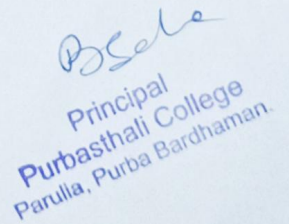 Principal
Purbasthali College
Parulia, Purba Bardhaman.